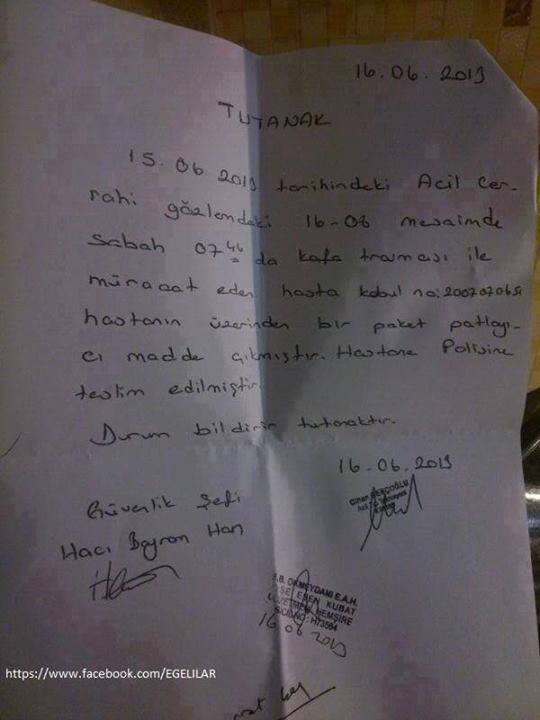 16.06.2013
TUTANAK
15.06.2013 tarihindeki Acil Cer-
rahi gözlemdeki 16-08 mesaimde
Sabah 07 46 da kafa travması ile
müracaat eden hasta kabul no:2007070651
hastanın üzerinden bir paket patlayı-
cı madde çıkmıştır. Hastane Polisine
teslim edilmiştir.
Durum bildirir tutanaktır.
16.06.2013
Güvenlik Şefi
Hacı Bayram Han
OKMEYDANI E.A.H.
EREN KUBAT
HEMŞİRE
H73564
16 06 2013
https://www.facebook.com/EGELILAR